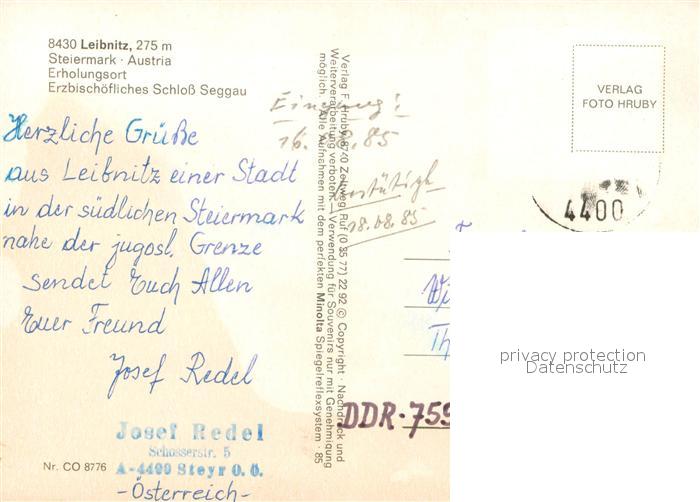 8430 Leibnitz, 275 m
Steiermark · Austria
Erholungsort
Erzbischöfliches Schloß Seggau
Herzliche Grüße
aus Leibnitz einer Stadt
in der südlichen Steiermark
nahe der jugosl. Grenze
sendet Euch Allen
Euer Freund
Josef Redel
Josef Redel
Schosserstr. 5
A-4400 Steyr O. Ö.
-Österreich-
Nr. CO 8776
Verlag F. Hruby, 8740 Zeltweg, Ruf (0 35 77) 22 92 © Copyright · Nachdruck und
Weiterverarbeitung verboten. – Verwendung für Souvenirs nur mit Genehmigung
möglich. Alle Aufnahmen mit dem perfekten Minolta Spiegelreflexsystem · 85
Eingang!
16.08.85
bestätigt
18.08.85
VERLAG
FOTO HRUBY
4400
Wi
Th
DDR-759
privacy protection
Datenschutz